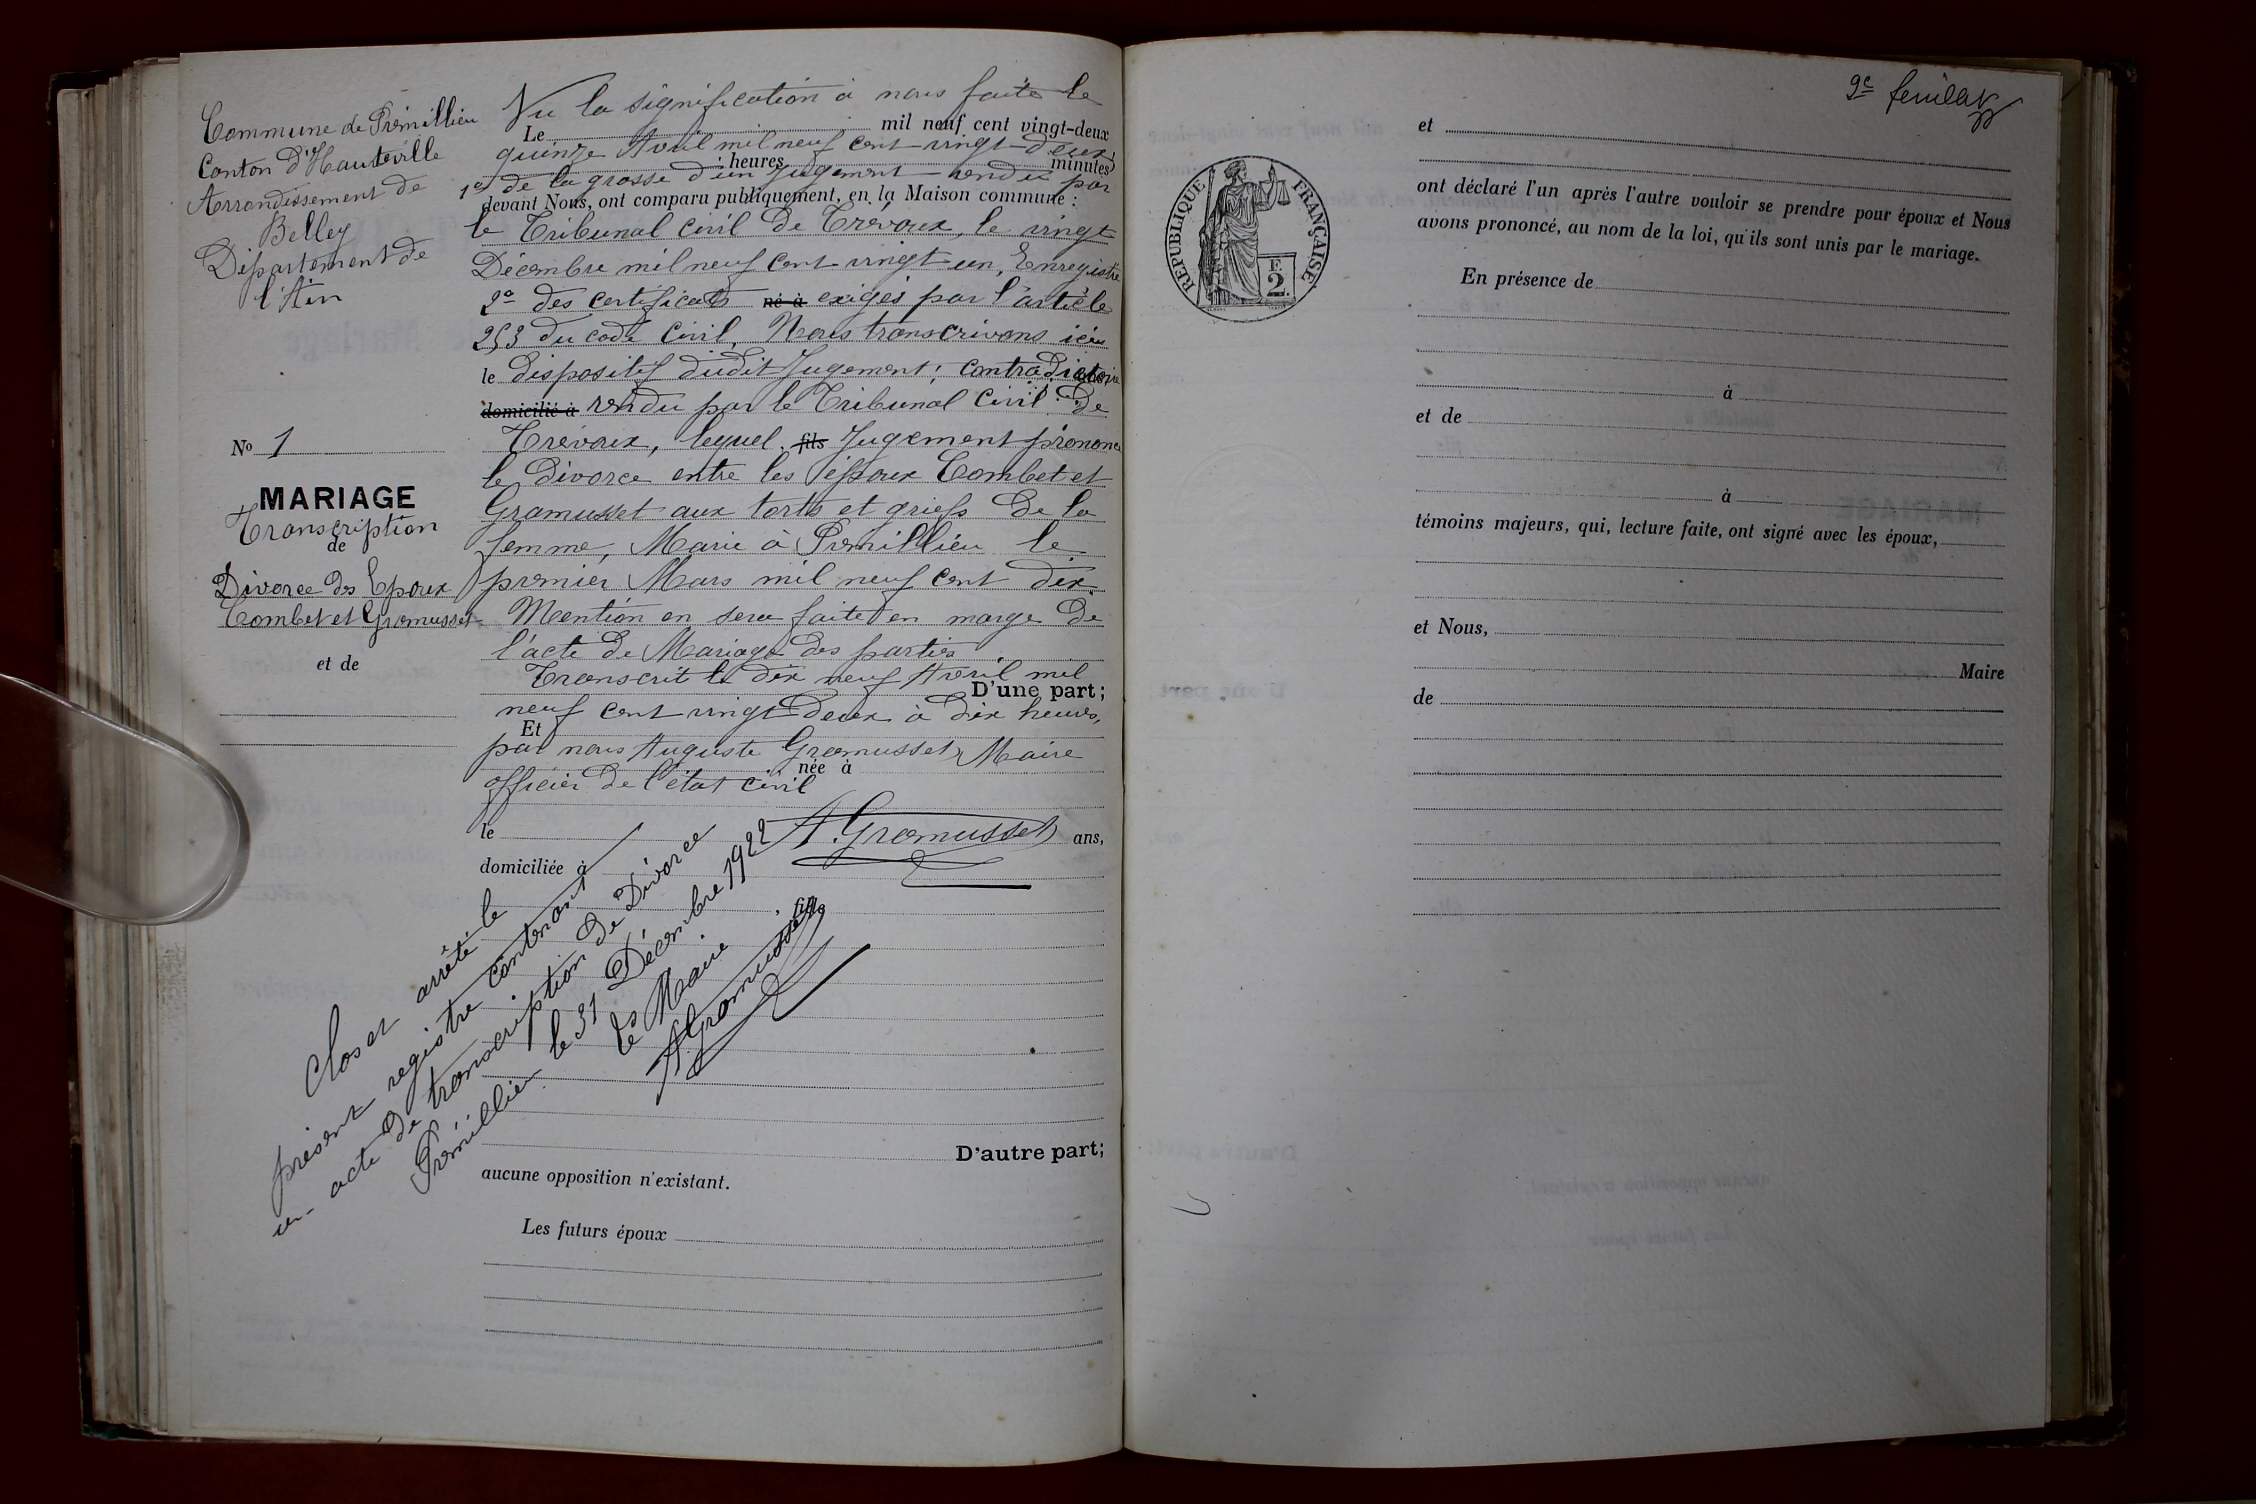 Commune de Prémillieu
Canton d'Hauteville
Arrondissement de
Belley
Département de
l'Ain
No 1
MARIAGE
Transcription
de
Divorce des Epoux
Combet et Gramusset
et de
Vu la signification à nous faite le
Le mil neuf cent vingt-deux
quinze Avril mil neuf cent vingt-deux,
heures minutes
1o de la grosse d'un Jugement rendu par
devant Nous, ont comparu publiquement, en la Maison commune :
le Tribunal civil de Trévoux, le vingt
Décembre mil neuf cent vingt un, Enregistré
2o des certificats né à exigés par l'article
253 du code civil, Nous transcrivons ici
le dispositif dudit Jugement; contradictoire
domicilié à rendu par le Tribunal Civil de
Trévoux, lequel fils Jugement prononce
le divorce entre les époux Combet et
Gramusset aux torts et griefs de la
femme, Marié à Prémillieu le
premier Mars mil neuf cent dix.
Mention en sera faite en marge de
l'acte de Mariage des parties
Transcrit le dix neuf Avril mil
D'une part;
neuf cent vingt deux à dix heures,
Et
par nous Auguste Gramusset, Maire
née à
officier de l'état civil
le ans,
A. Gramusset
domiciliée à
fille
Clos et arrêté le
présent registre contenant
un acte de transcription de Divorce
Prémillieu le 31 Décembre 1922
Le Maire
A Gramusset
D'autre part;
aucune opposition n'existant.
Les futurs époux
9e feuillet
RÉPUBLIQUE FRANÇAISE
F.
2.
et
ont déclaré l'un après l'autre vouloir se prendre pour époux et Nous
avons prononcé, au nom de la loi, qu'ils sont unis par le mariage.
En présence de
à
et de
à
témoins majeurs, qui, lecture faite, ont signé avec les époux,
et Nous,
Maire
de